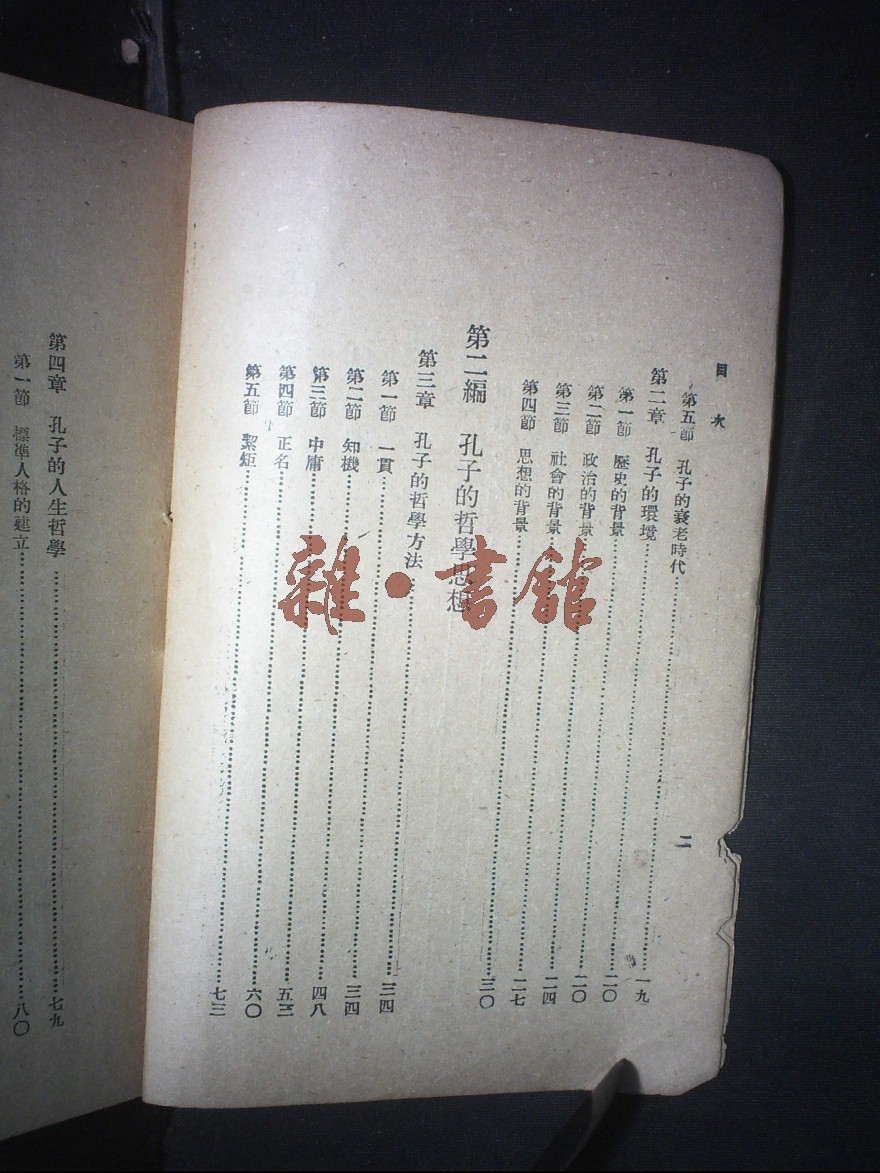 目次
二
第五節 孔子的衰老時代……一九
第二章 孔子的環境……二〇
第一節 歷史的背景……二〇
第二節 政治的背景……二四
第三節 社會的背景……二七
第四節 思想的背景……三〇
第二編 孔子的哲學思想
第三章 孔子的哲學方法……三四
第一節 一貫……三四
第二節 知機……四八
第三節 中庸……五三
第四節 正名……六〇
第五節 絜矩……七三
第四章 孔子的人生哲學……七九
第一節 標準人格的建立……八〇
雜·書館